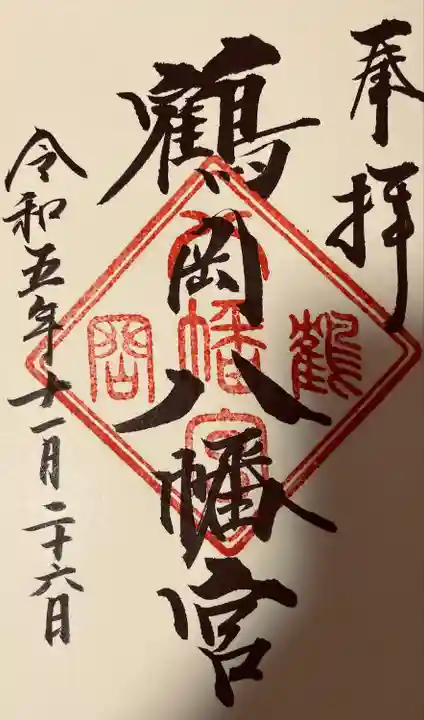 奉拝
鶴岡八幡宮
鶴
岡
八幡宮
令和五年十一月二十六日